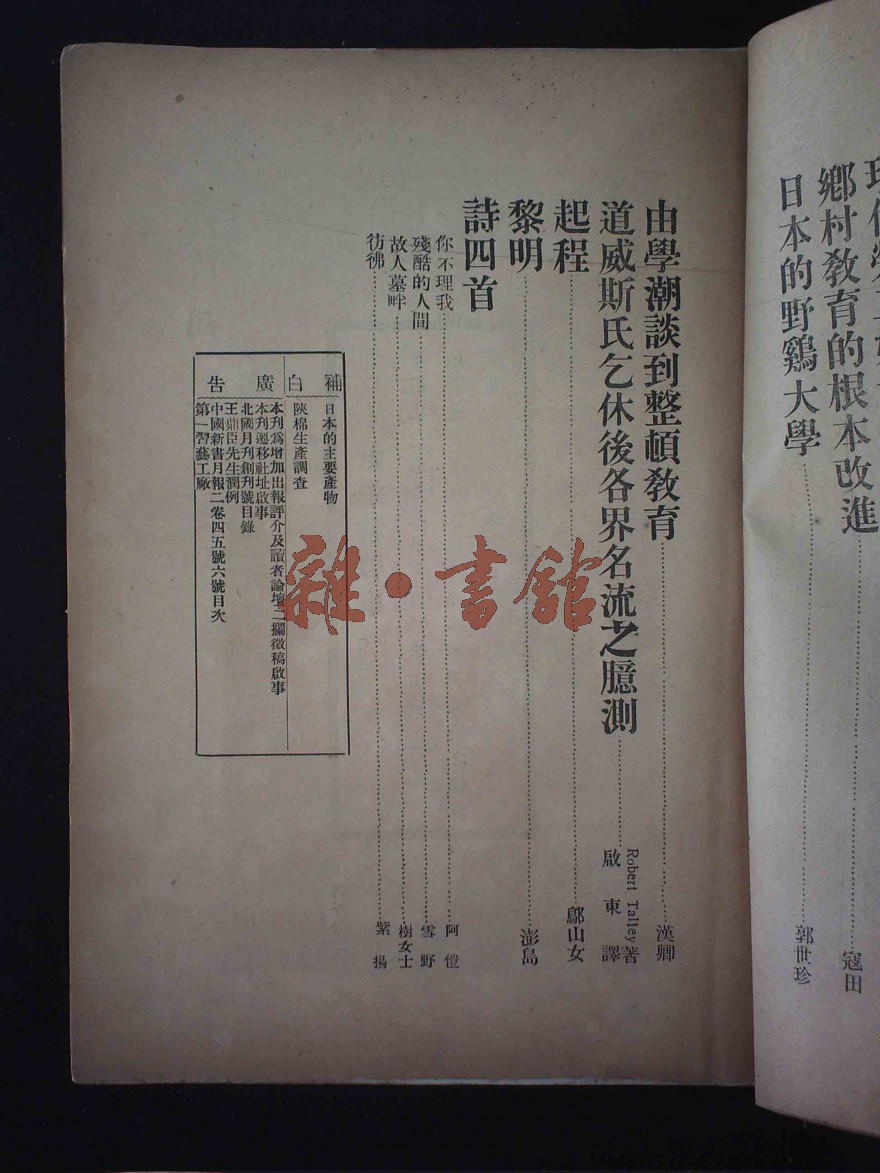 鄉村教育的根本改進 寇田
日本的野鷄大學 郭世珍
由學潮談到整頓教育 漢卿
道威斯氏乞休後各界名流之臆測 Robert Talley著 啟東譯
起程 鄔山女
黎明 澎島
詩四首
你不理我 阿愷
殘酷的人間 雪野
故人墓畔 樹女士
彷彿 紫揚
補白
日本的主要產物
陝棉生產調查
廣告
本刊爲增加出報評介及讀者論壇二攔徵稿啟事
本刊遷移社址啟事
北國月刊創刊號目錄
王鼎臣先生潤例
中國新書月報二卷四五號六號目次
第一習藝工廠
雜·書館